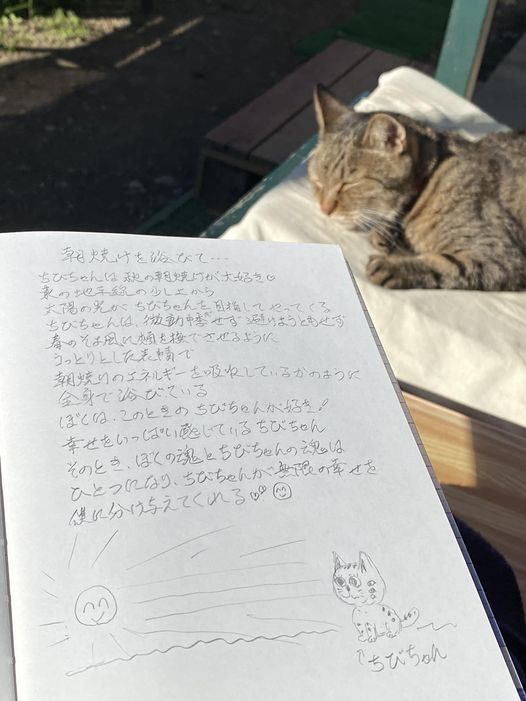 朝焼けを浴びて…
ちびちゃんは秋の朝焼けが大好き♡
東の地平線の少し上から
太陽の光がちびちゃんを目指してやってくる
ちびちゃんは、微動だせず避けようともせず
春のそよ風に頬を撫でさせるように
うっとりとした表情で
朝焼けのエネルギーを吸収しているかのように
全身で浴びている
ぼくは、このときのちびちゃんが好き!
幸せをいっぱい感じているちびちゃん
そのとき、ぼくの魂とちびちゃんの魂は
ひとつになり、ちびちゃんが無限の幸せを
僕に分け与えてくれる
↑ちびちゃん